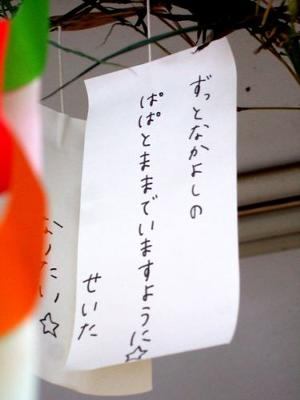 ずっとなかよしの
ぱぱとままでいますように☆
せいた
なりたい☆